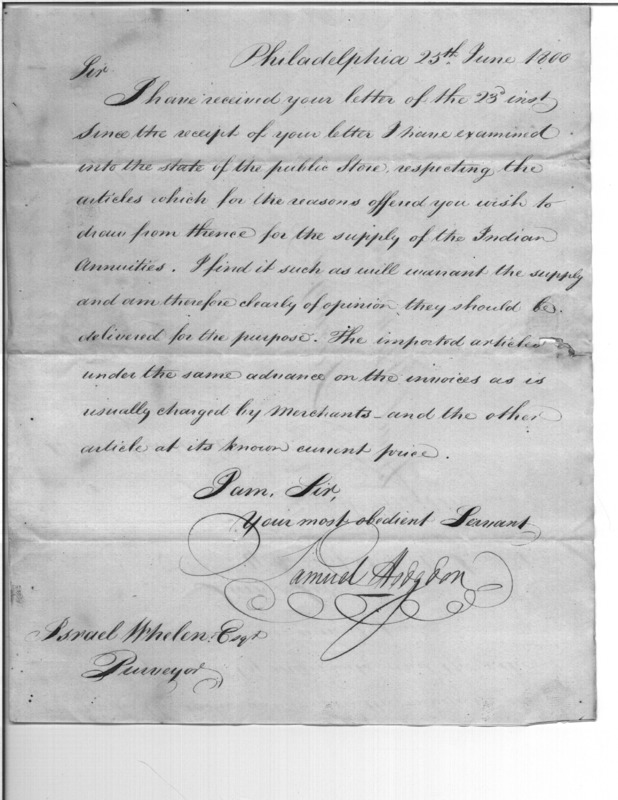 Philadelphia 25th. June 1800
Sir
I have received your letter of the 23d inst
Since the receipt of your letter I have examined
into the state of the public Store, respecting the
articles which for the reasons offend you wish to
draw from thence for the supply of the Indian
Annuities. I find it such as will warrant the supply
and am therefore clearly of opinion they should be
delivered for the purpose. The imported articles
under the same advance on the invoices as is
usually charged by Merchants - and the other
article at its known current price.
I am, Sir,
Your most obedient Servant
Samuel Hodgdon
Israel Whelen Esqr.
Purveyor